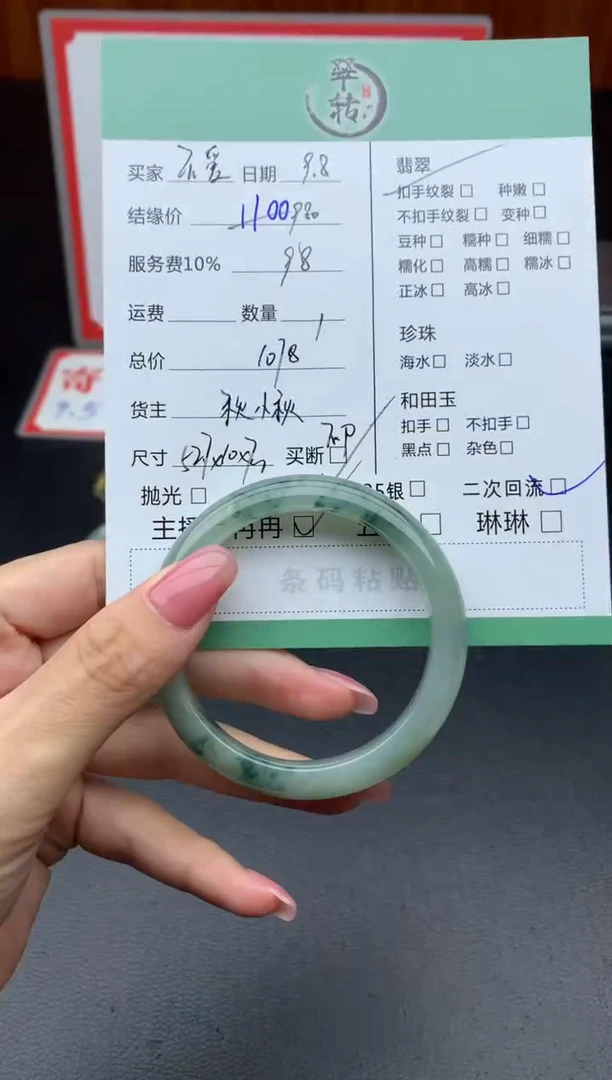 翠
转
买家 不爱 日期 9.8
结缘价 1100 980
服务费10% 98
运费 数量 1
总价 1078
货主 秋小秋
尺寸 买断
抛光 银 二次回流
主 冉冉 琳琳
条码粘贴
翡翠
扣手纹裂 种嫩
不扣手纹裂 变种
豆种 糯种 细糯
糯化 高糯 糯冰
正冰 高冰
珍珠
海水 淡水
和田玉
扣手 不扣手
黑点 杂色
寄
9.5